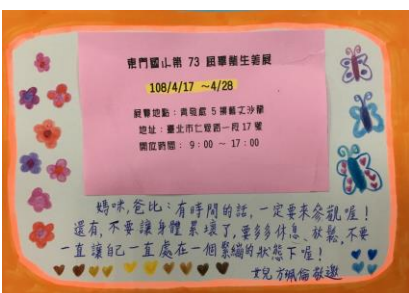 東門國小第 73 屆畢業生美展
108/4/17 ～4/28
展覽地點：
地址：臺北市仁愛路一段 17 號
開放時間： 9：00 ～ 17：00
媽咪,爸比：有時間的話,一定要來參觀喔！
還有,不要讓身體累壞了,要多多休息、放鬆,不要
一直讓自己一直處在一個緊繃的狀態下喔！
女兒方珮倫敬邀